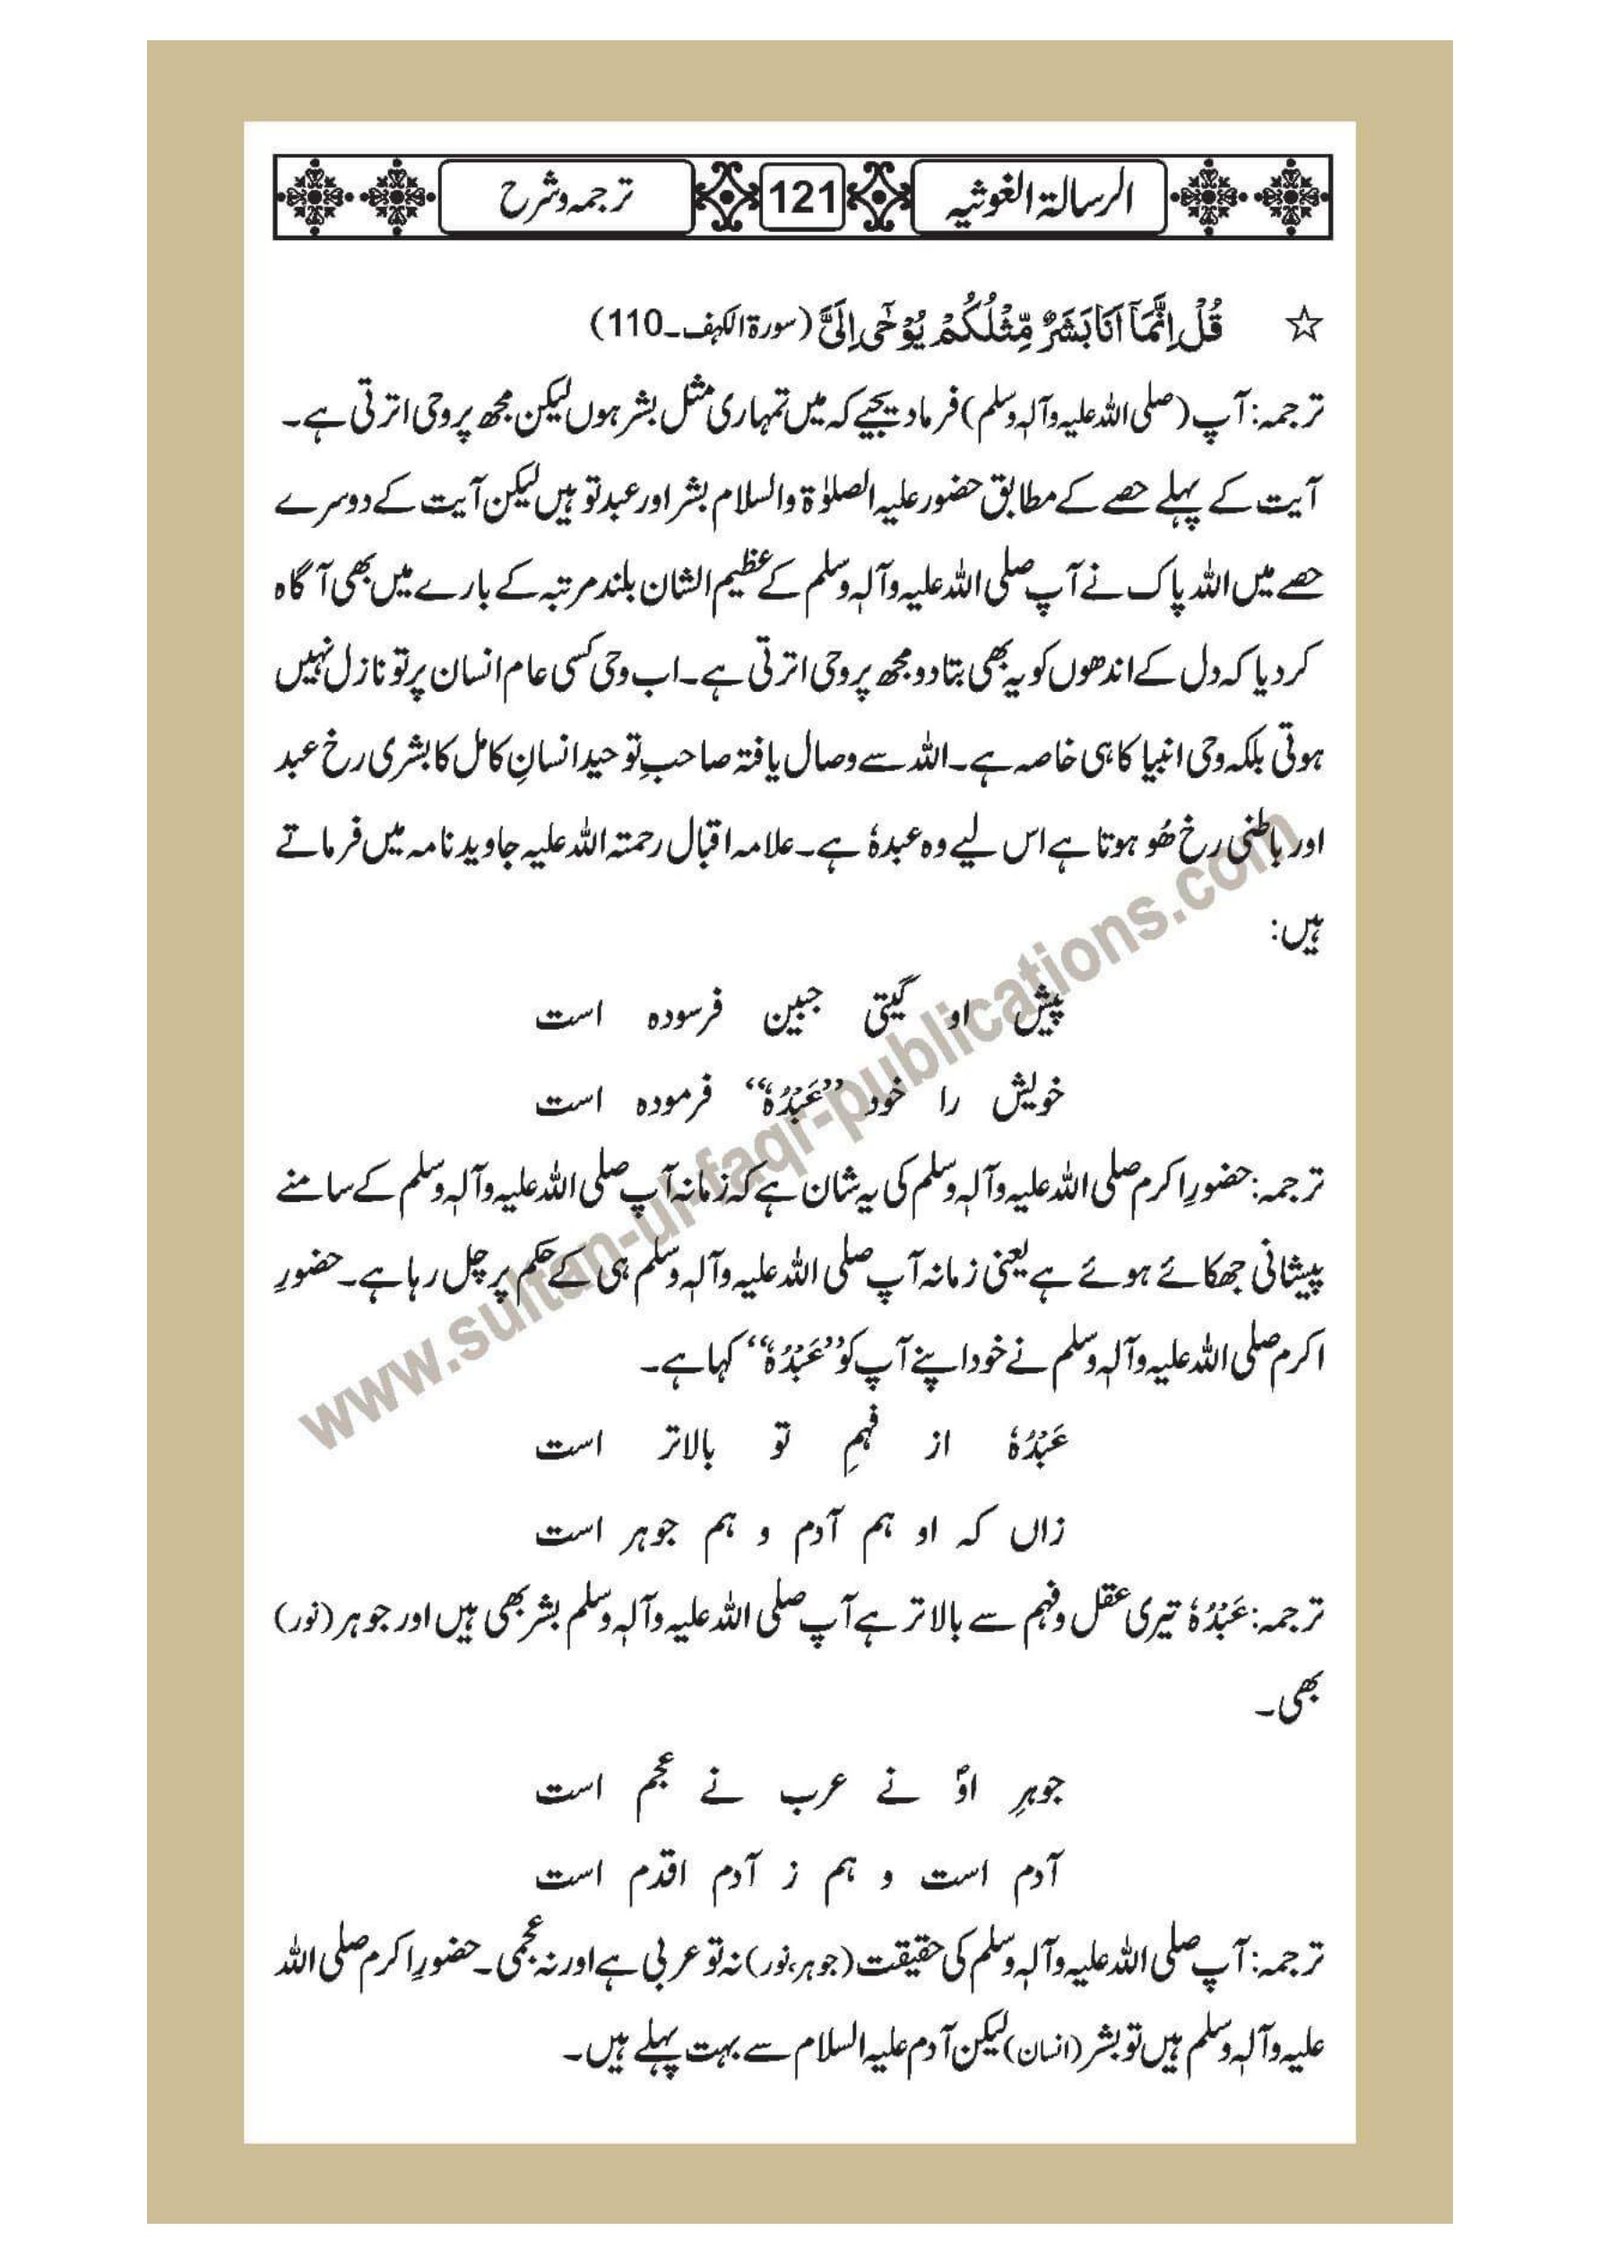 الرسالۃ الغوثیہ 121 ترجمہ و شرح
☆ قُلْ اِنَّمَآ اَنَا بَشَرٌ مِّثْلُكُمْ يُوْحٰٓى اِلَىَّ (سورۃ الکہف۔110)
ترجمہ: آپ (صلی اللہ علیہ وآلہٖ وسلم) فرما دیجیے کہ میں تمہاری مثل بشر ہوں لیکن مجھ پر وحی اترتی ہے۔
آیت کے پہلے حصے کے مطابق حضور علیہ الصلوٰۃ والسلام بشر اور عبد تو ہیں لیکن آیت کے دوسرے
حصے میں اللہ پاک نے آپ صلی اللہ علیہ وآلہٖ وسلم کے عظیم الشان بلند مرتبہ کے بارے میں بھی آگاہ
کر دیا کہ دل کے اندھوں کو یہ بھی بتا دو مجھ پر وحی اترتی ہے۔ اب وحی کسی عام انسان پر تو نازل نہیں
ہوتی بلکہ وحی انبیا کا ہی خاصہ ہے۔ اللہ سے وصال یافتہ صاحبِ توحید انسانِ کامل کا بشری رخ عبد
اور باطنی رخ ھُو ہوتا ہے اس لیے وہ عبدہٗ ہے۔ علامہ اقبال رحمتہ اللہ علیہ جاوید نامہ میں فرماتے
ہیں:
پیش او گیتی جبین فرسودہ است
خویش را خود ’’عَبْدُہٗ‘‘ فرمودہ است
ترجمہ: حضورِ اکرم صلی اللہ علیہ وآلہٖ وسلم کی یہ شان ہے کہ زمانہ آپ صلی اللہ علیہ وآلہٖ وسلم کے سامنے
پیشانی جھکائے ہوئے ہے یعنی زمانہ آپ صلی اللہ علیہ وآلہٖ وسلم ہی کے حکم پر چل رہا ہے۔ حضورِ
اکرم صلی اللہ علیہ وآلہٖ وسلم نے خود اپنے آپ کو ’’عَبْدُہٗ‘‘ کہا ہے۔
عَبْدُہٗ از فہمِ تو بالاتر است
زاں کہ او ہم آدم و ہم جوہر است
ترجمہ: عَبْدُہٗ تیری عقل و فہم سے بالاتر ہے آپ صلی اللہ علیہ وآلہٖ وسلم بشر بھی ہیں اور جوہر (نور)
بھی۔
جوہرِ اوؐ نے عرب نے عجم است
آدم است و ہم ز آدم اقدم است
ترجمہ: آپ صلی اللہ علیہ وآلہٖ وسلم کی حقیقت (جوہر، نور) نہ تو عربی ہے اور نہ عجمی۔ حضورِ اکرم صلی اللہ
علیہ وآلہٖ وسلم ہیں تو بشر (انسان) لیکن آدم علیہ السلام سے بہت پہلے ہیں۔
www.sultan-ul-faqr-publications.com